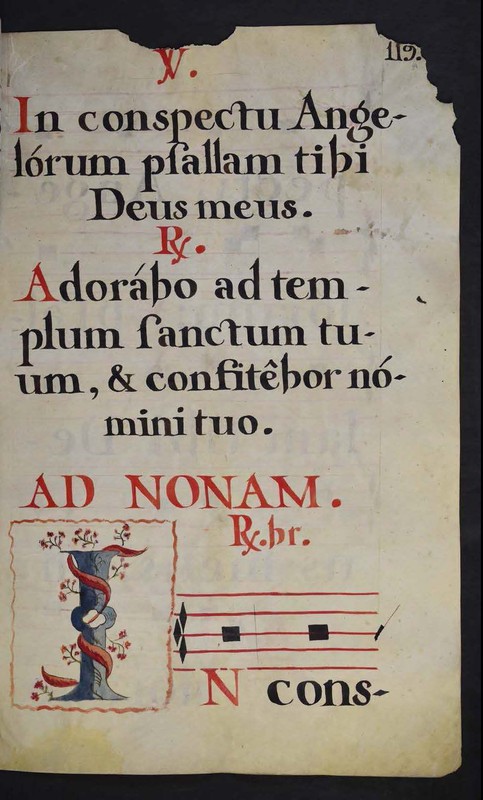 119.
℣.
In conspectu Ange-
lórum pſallam tibi
Deus meus.
℟.
Adorábo ad tem-
plum ſanctum tu-
um, & confitêbor nó-
mini tuo.
AD NONAM.
℟.br.
IN cons-